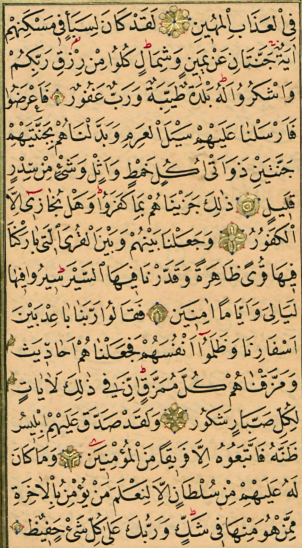 فِي الْعَذَابِ الْمُهِينِ لَقَدْ كَانَ لِسَبَأٍ فِي مَسْكَنِهِمْ
آيَةٌ جَنَّتَانِ عَنْ يَمِينٍ وَشِمَالٍ كُلُوا مِنْ رِزْقِ رَبِّكُمْ
وَاشْكُرُوا لَهُ بَلْدَةٌ طَيِّبَةٌ وَرَبٌّ غَفُورٌ فَأَعْرَضُوا
فَأَرْسَلْنَا عَلَيْهِمْ سَيْلَ الْعَرِمِ وَبَدَّلْنَاهُمْ بِجَنَّتَيْهِمْ
جَنَّتَيْنِ ذَوَاتَيْ أُكُلٍ خَمْطٍ وَأَثْلٍ وَشَيْءٍ مِنْ سِدْرٍ
قَلِيلٍ ذَلِكَ جَزَيْنَاهُمْ بِمَا كَفَرُوا وَهَلْ نُجَازِي إِلَّا
الْكَفُورَ وَجَعَلْنَا بَيْنَهُمْ وَبَيْنَ الْقُرَى الَّتِي بَارَكْنَا
فِيهَا قُرًى ظَاهِرَةً وَقَدَّرْنَا فِيهَا السَّيْرَ سِيرُوا فِيهَا
لَيَالِيَ وَأَيَّامًا آمِنِينَ فَقَالُوا رَبَّنَا بَاعِدْ بَيْنَ
أَسْفَارِنَا وَظَلَمُوا أَنْفُسَهُمْ فَجَعَلْنَاهُمْ أَحَادِيثَ
وَمَزَّقْنَاهُمْ كُلَّ مُمَزَّقٍ إِنَّ فِي ذَلِكَ لَآيَاتٍ
لِكُلِّ صَبَّارٍ شَكُورٍ وَلَقَدْ صَدَّقَ عَلَيْهِمْ إِبْلِيسُ
ظَنَّهُ فَاتَّبَعُوهُ إِلَّا فَرِيقًا مِنَ الْمُؤْمِنِينَ وَمَا كَانَ
لَهُ عَلَيْهِمْ مِنْ سُلْطَانٍ إِلَّا لِنَعْلَمَ مَنْ يُؤْمِنُ بِالْآخِرَةِ
مِمَّنْ هُوَ مِنْهَا فِي شَكٍّ وَرَبُّكَ عَلَى كُلِّ شَيْءٍ حَفِيظٌ